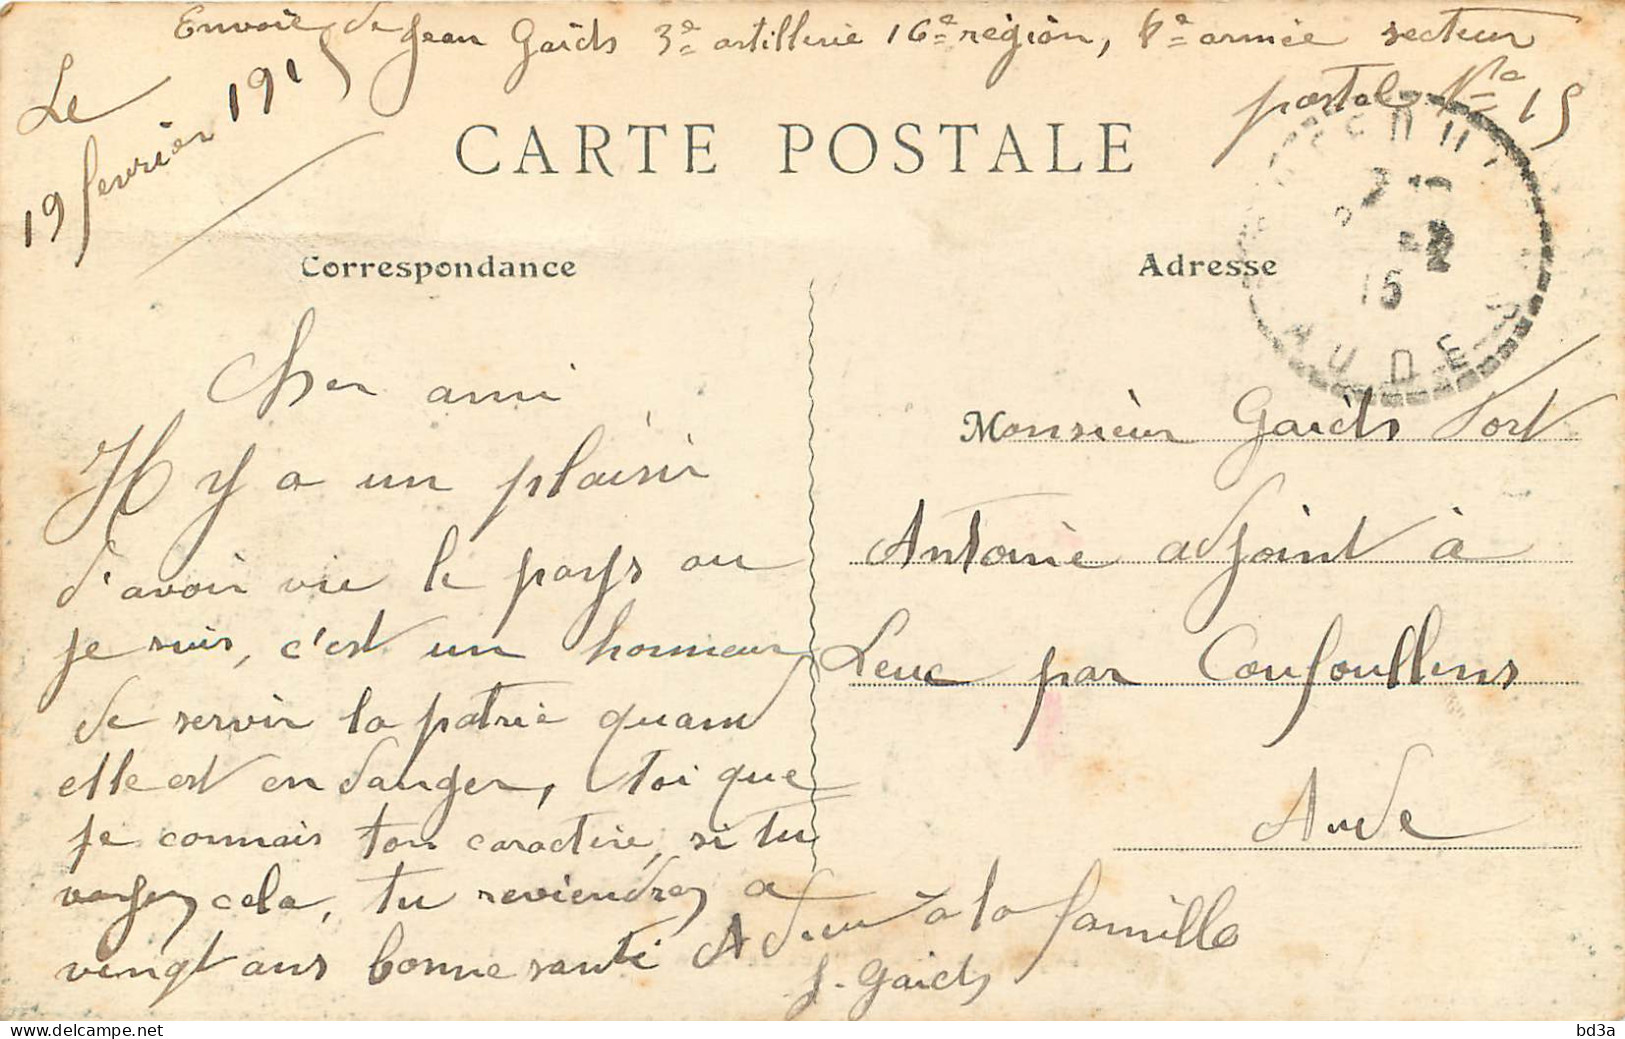 Envoie de Jean Gaïds 3e artillerie 16e région, 8e armée secteur
postal No 15
Le
19 fevrier 1915
CARTE POSTALE
Correspondance
Adresse
15
AUDE
Cher ami
Il y a un plaisir
d'avoir vue le pays ou
je suis, c'est un honneur
de servir la patrie quand
elle est en danger, toi que
je connais ton caractère, si tu
voyez cela, tu reviendrez a
vingt ans bonne santé Adieu à la famille
J. Gaïds
Monsieur Gaïds Port
Antoine adjoint à
Leuc par Coufoullens
Aude
bd3a